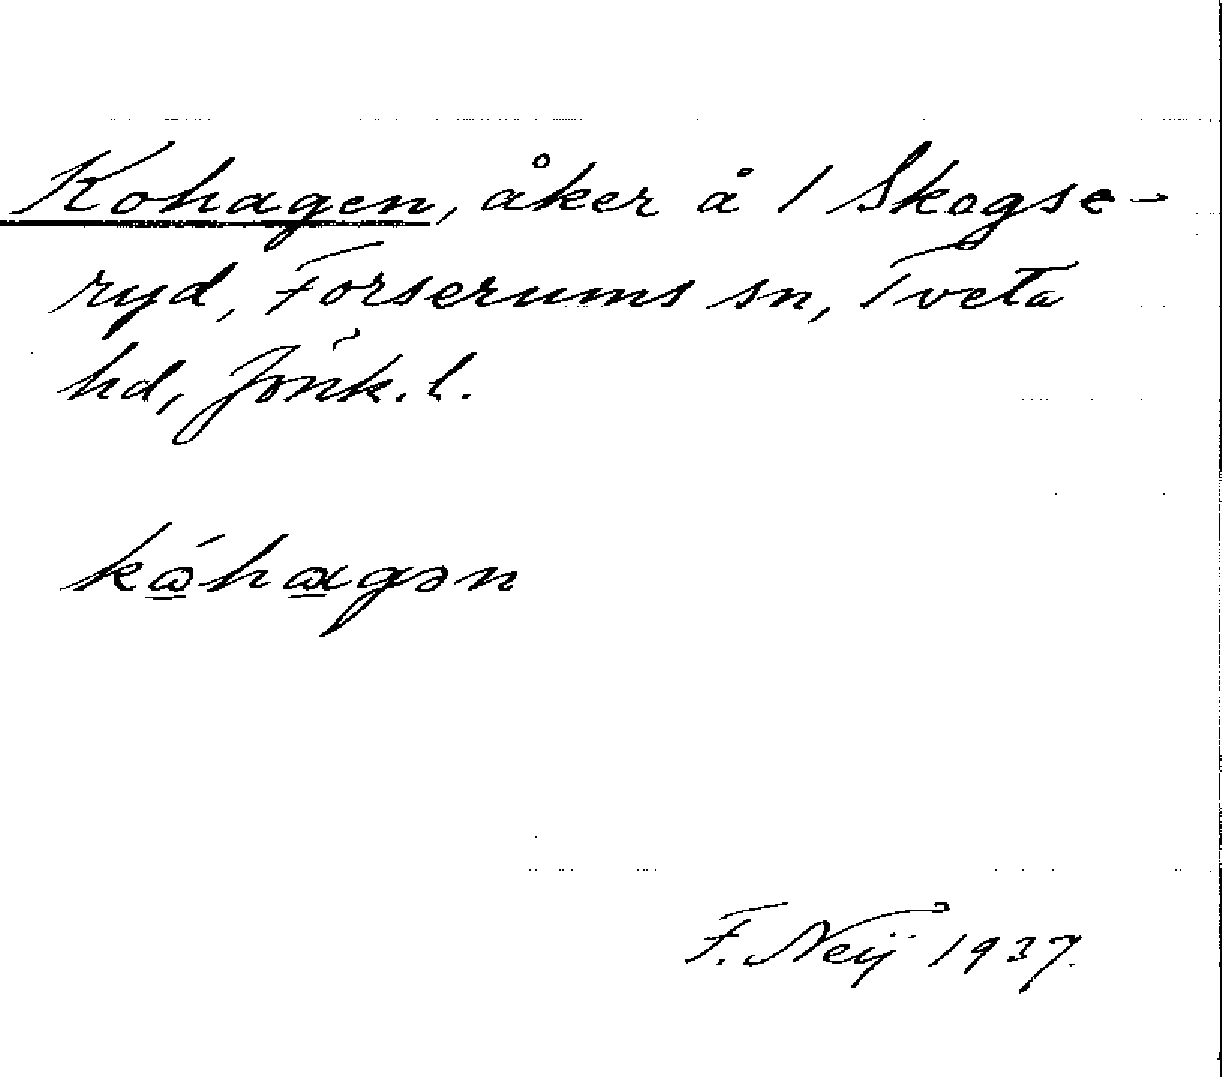 Kohagen, åker å 1 Skogse-
ryd, Forserums sn, Tveta
hd, Jönk. l.
kώ̲hα̲gən
F. Neij 1937.